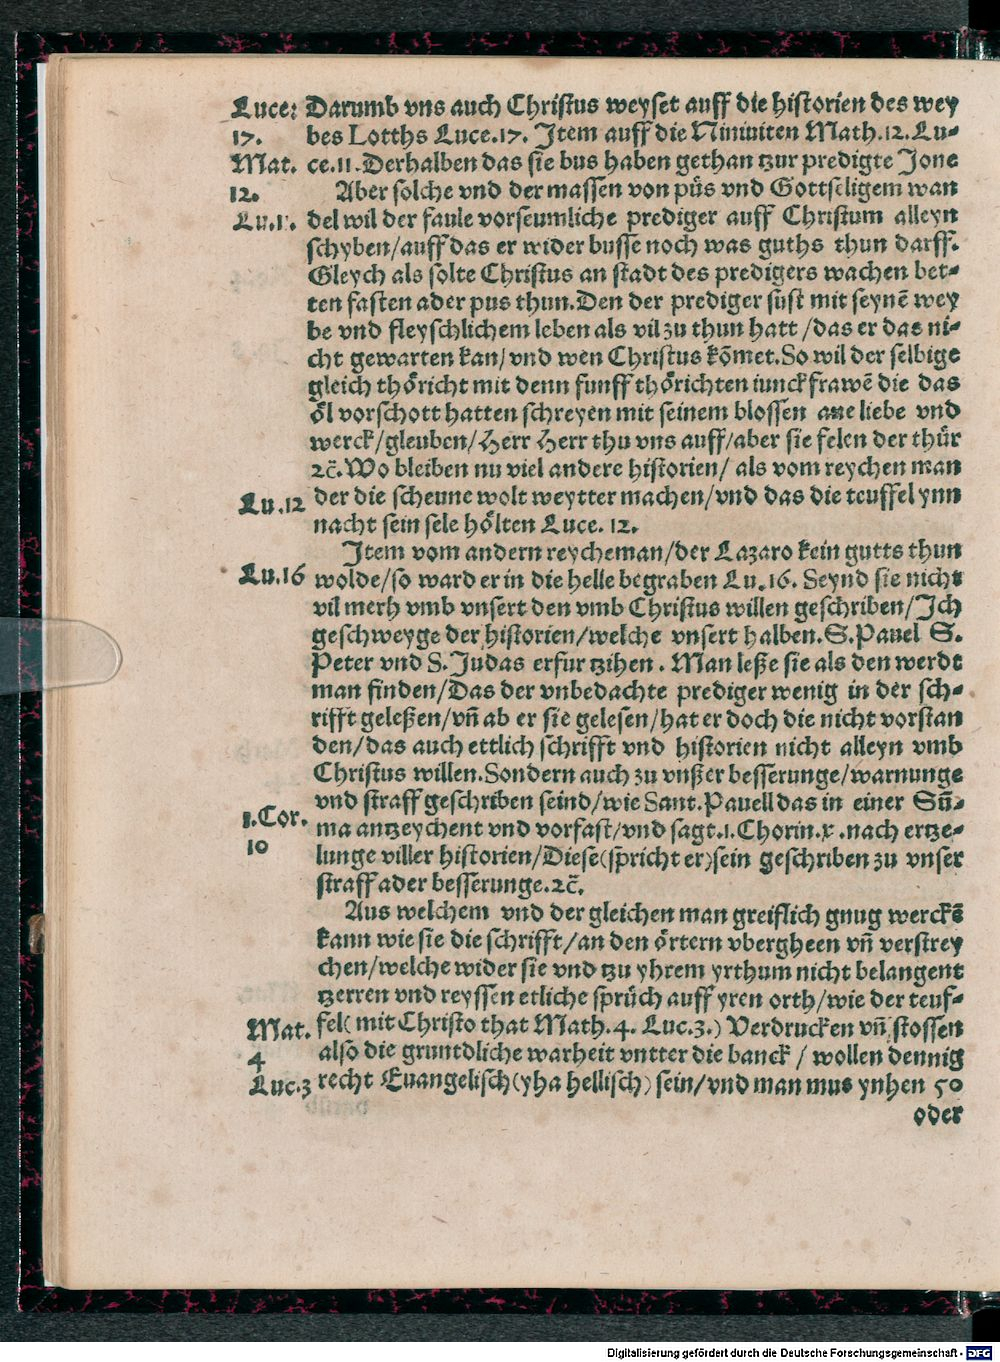 Luce: Darumb vns auch Christus weyset auff die historien des wey
17. bes Lotths Luce.17. Item auff die Niniuiten Math.12. Lu-
Mat. ce.11. Derhalben das sie bus haben gethan tzur predigte Jone
12. Aber solche vnd der massen von půs vnd Gottseligem wan
Lu.1'. del wil der faule vorseumliche prediger auff Christum alleyn
schyben/auff das er wider busse noch was guths thun darff.
Gleych als solte Christus an stadt des predigers wachen bet-
ten fasten ader pus thun. Den der prediger sust mit seynē wey
be vnd fleyschlichem leben als vil zu thun hatt/das er das ni-
cht gewarten kan/vnd wen Christus kōmet. So wil der selbige
gleich thöricht mit denn funff thörichten iunckfrawē die das
öl vorschott hatten schreyen mit seinem blossen ane liebe vnd
werck/gleuben/Herr Herr thu vns auff/aber sie felen der thür
ꝛc̄. Wo bleiben nu viel andere historien/als vom reychen man
Lu.12 der die scheune wolt weytter machen/vnd das die teuffel ynn
nacht sein sele hölten Luce. 12.
Item vom andern reycheman/der Lazaro kein gutts thun
Lu.16 wolde/so ward er in die helle begraben Lu.16. Seynd sie nicht
vil merh vmb vnsert den vmb Christus willen geschriben/Ich
geschweyge der historien/welche vnsert halben. S. Pauel S.
Peter vnd S. Judas erfur tzihen. Man leße sie als den werdt
man finden/Das der vnbedachte prediger wenig in der sch-
rifft geleßen/vn̄ ab er sie gelesen/hat er doch die nicht vorstan
den/das auch ettlich schrifft vnd historien nicht alleyn vmb
Christus willen. Sondern auch zu vnßer besserunge/warnunge
vnd straff geschriben seind/wie Sant. Pauell das in einer Sūm-
1.Cor. ma antzeychent vnd vorfast/vnd sagt.1. Chorin.x. nach ertze-
10 lunge viller historien/Diese(spricht er)sein geschriben zu vnser
straff ader besserunge.ꝛc̄.
Aus welchem vnd der gleichen man greiflich gnug werckē
kann wie sie die schrifft/an den örtern vbergheen vn̄ verstrey
chen/welche wider sie vnd tzu yhrem yrthum nicht belangent
tzerren vnd reyssen etliche sprüch auff yren orth/wie der teuf-
Mat. fel( mit Christo that Math.4. Luc.3.) Verdrucken vn̄ stossen
4 also die gruntdliche warheit vntter die banck/wollen dennig
Luc.3 recht Euangelisch(yha hellisch) sein/vnd man mus ynhen so
oder
Digitalisierung gefördert durch die Deutsche Forschungsgemeinschaft - DFG